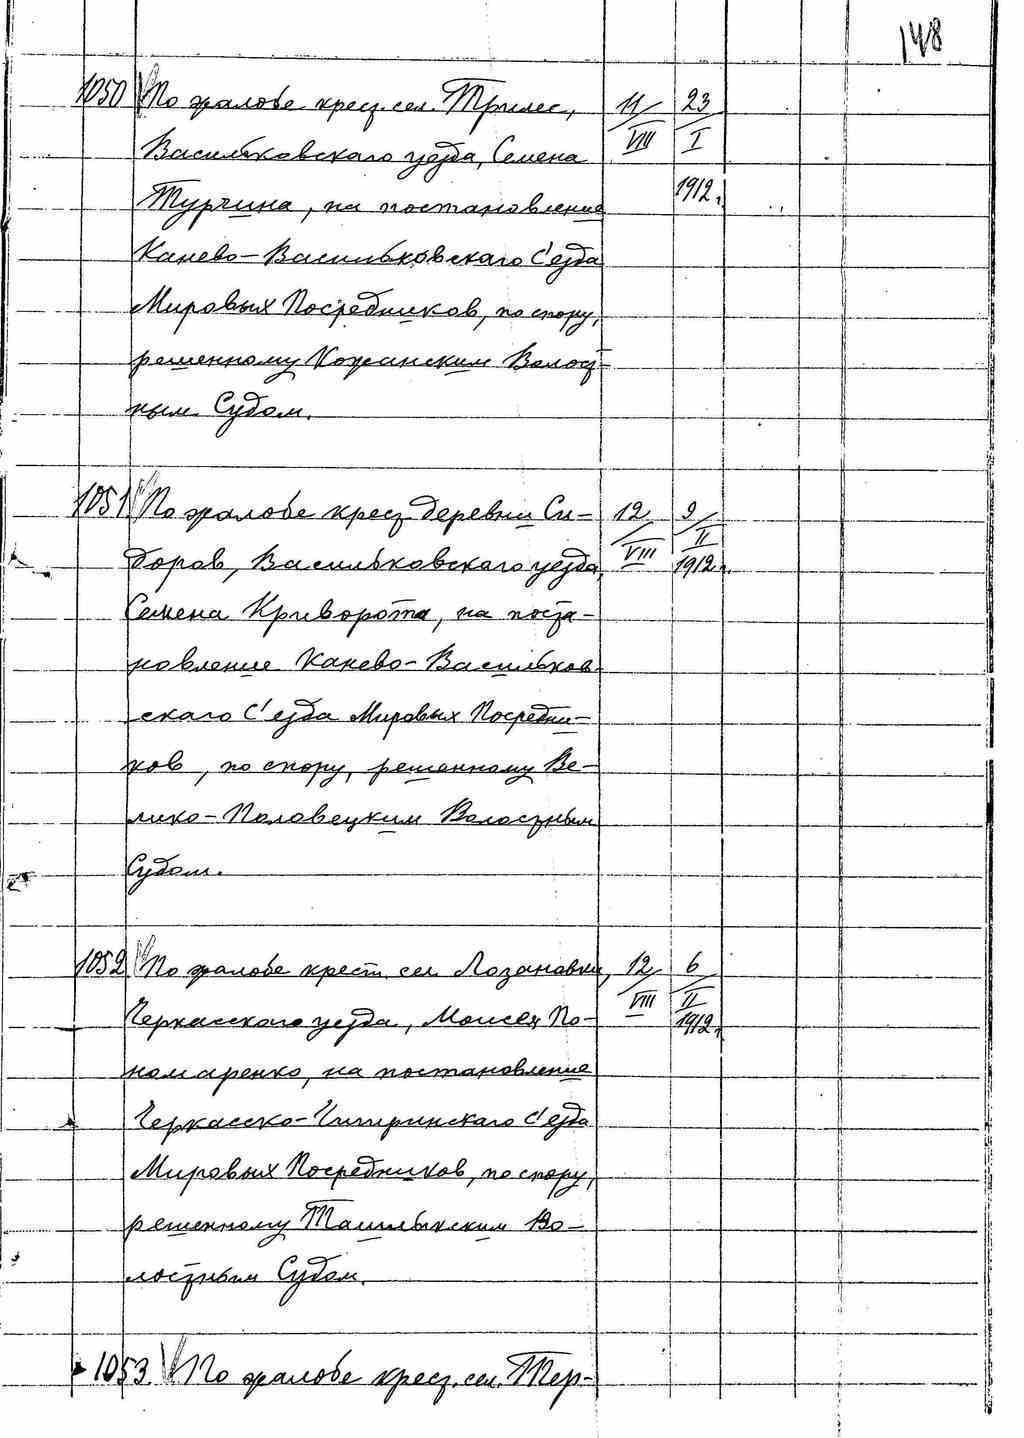 148
1050 По жалобе крест. сел. Трилес, 11/VIII 23/I
Васильковского уезда, Семена 1912 г.
Турчина, на постановление
Канево-Васильковскаго С'езда
Мировых Посредников, по спору,
решенному Кожанским Волост-
ным Судом.
1051 По жалобе крест. деревни Си- 12/VIII 9/II
доров, Васильковскаго уезда, 1912 г.
Семена Криворота, на поста-
новление Канево-Васильков-
скаго С'езда Мировых Посредни-
ков, по спору, решенному Ве-
лико-Половецким Волостным
Судом.
1052 По жалобе крест. сел. Лозановки, 12/VIII 6/II
Черкасскаго уезда, Моисея По- 1912 г.
номаренко, на постановление
Черкасско-Чигиринскаго С'езда
Мировых Посредников, по спору,
решенному Ташлыкским Во-
лостным Судом.
1053 По жалобе крест. сел. Тер-